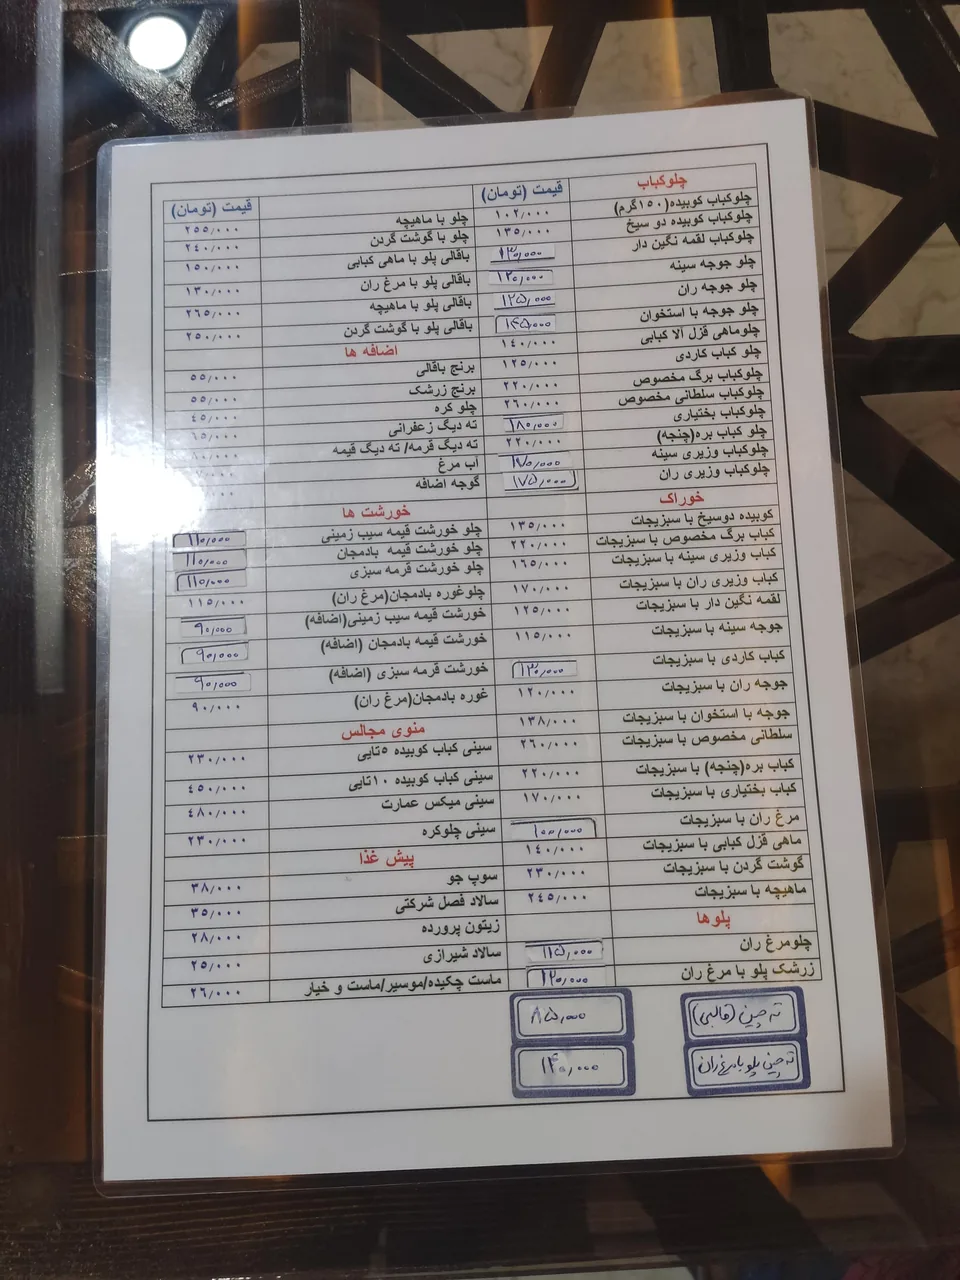 چلوکباب قیمت (تومان)
چلوکباب کوبیده(۱۵۰گرم) ۱۰۲/۰۰۰
چلوکباب کوبیده دو سیخ ۱۳۵/۰۰۰
چلوکباب لقمه نگین دار ۱۳۰/۰۰۰
چلو جوجه سینه ۱۲۰/۰۰۰
چلو جوجه ران ۱۲۵/۰۰۰
چلو جوجه با استخوان ۱۴۵/۰۰۰
چلوماهی قزل الا کبابی ۱۴۰/۰۰۰
چلو کباب کاردی ۱۲۵/۰۰۰
چلوکباب برگ مخصوص ۲۲۰/۰۰۰
چلوکباب سلطانی مخصوص ۲۶۰/۰۰۰
چلوکباب بختیاری ۱۸۰/۰۰۰
چلو کباب بره(چنجه) ۲۲۰/۰۰۰
چلوکباب وزیری سینه ۱۷۰/۰۰۰
چلوکباب وزیری ران ۱۷۵/۰۰۰
خوراک
کوبیده دوسیخ با سبزیجات ۱۳۵/۰۰۰
کباب برگ مخصوص با سبزیجات ۲۲۰/۰۰۰
کباب وزیری سینه با سبزیجات ۱۶۵/۰۰۰
کباب وزیری ران با سبزیجات ۱۷۰/۰۰۰
لقمه نگین دار با سبزیجات ۱۲۵/۰۰۰
جوجه سینه با سبزیجات ۱۱۵/۰۰۰
کباب کاردی با سبزیجات ۱۳۰/۰۰۰
جوجه ران با سبزیجات ۱۲۰/۰۰۰
جوجه با استخوان با سبزیجات ۱۳۸/۰۰۰
سلطانی مخصوص با سبزیجات ۲۶۰/۰۰۰
کباب بره(چنجه) با سبزیجات ۲۲۰/۰۰۰
کباب بختیاری با سبزیجات ۱۷۰/۰۰۰
مرغ ران با سبزیجات ۱۰۰/۰۰۰
ماهی قزل کبابی با سبزیجات ۱۴۰/۰۰۰
گوشت گردن با سبزیجات ۲۳۰/۰۰۰
ماهیچه با سبزیجات ۲۴۵/۰۰۰
پلوها
چلومرغ ران ۱۱۵/۰۰۰
زرشک پلو با مرغ ران ۱۲۰/۰۰۰
ته چین (قالبی) ۸۵/۰۰۰
ته چین پلو با مرغ ران ۱۴۰/۰۰۰
قیمت (تومان)
چلو با ماهیچه ۲۵۵/۰۰۰
چلو با گوشت گردن ۲۴۰/۰۰۰
باقالی پلو با ماهی کبابی ۱۵۰/۰۰۰
باقالی پلو با مرغ ران ۱۳۰/۰۰۰
باقالی پلو با ماهیچه ۲۶۵/۰۰۰
باقالی پلو با گوشت گردن ۲۵۰/۰۰۰
اضافه ها
برنج باقالی ۵۵/۰۰۰
برنج زرشک ۵۵/۰۰۰
چلو کره ۴۵/۰۰۰
ته دیگ زعفرانی ۶۵/۰۰۰
ته دیگ قرمه/ ته دیگ قیمه
اب مرغ
گوجه اضافه
خورشت ها
چلو خورشت قیمه سیب زمینی ۱۱۰/۰۰۰
چلو خورشت قیمه بادمجان ۱۱۰/۰۰۰
چلو خورشت قرمه سبزی ۱۱۰/۰۰۰
چلوغوره بادمجان(مرغ ران) ۱۱۵/۰۰۰
خورشت قیمه سیب زمینی(اضافه) ۹۰/۰۰۰
خورشت قیمه بادمجان (اضافه) ۹۰/۰۰۰
خورشت قرمه سبزی (اضافه) ۹۰/۰۰۰
غوره بادمجان(مرغ ران) ۹۰/۰۰۰
منوی مجالس
سینی کباب کوبیده ۵تایی ۲۳۰/۰۰۰
سینی کباب کوبیده ۱۰تایی ۴۵۰/۰۰۰
سینی میکس عمارت ۴۸۰/۰۰۰
سینی چلوکره ۲۳۰/۰۰۰
پیش غذا
سوپ جو ۳۸/۰۰۰
سالاد فصل شرکتی ۳۵/۰۰۰
زیتون پرورده ۲۸/۰۰۰
سالاد شیرازی ۲۵/۰۰۰
ماست چکیده/موسیر/ماست و خیار ۲۶/۰۰۰